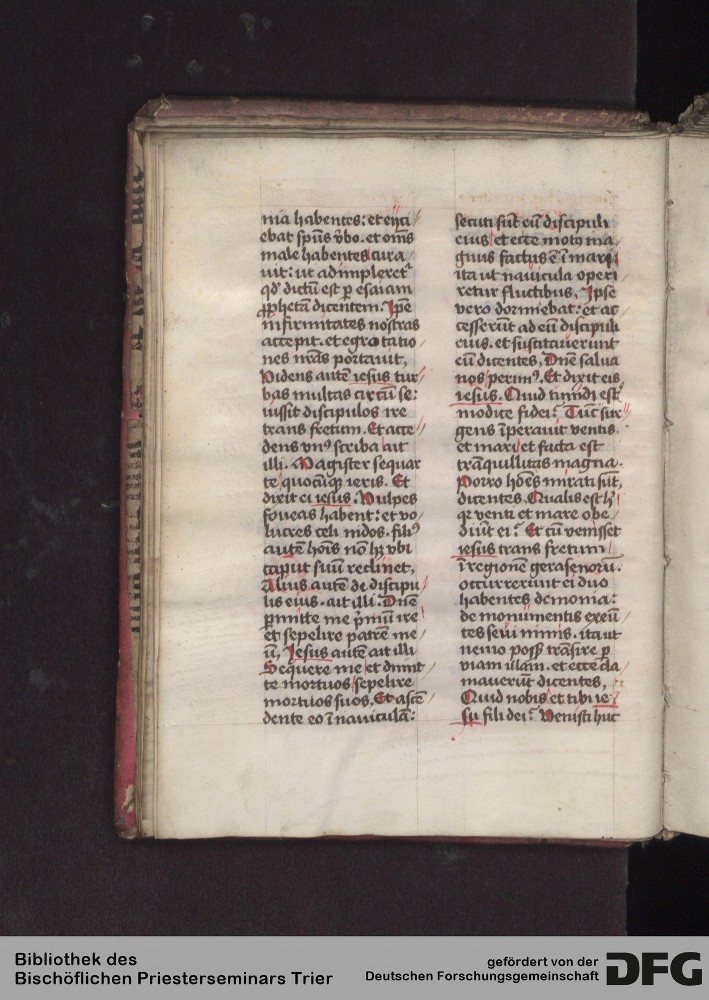 nia habentes: et eijci
ebat spūs v̄bo. et om̄s
male habentes cura
uit: ut adimpleret᷑
qđ dictū est p̱ esaiam
ꝓphetā dicentem. Ip̄e
infirmitates nostras
accepit. et egrotatio
nes nr̄as portauit,
Videns autē iesus tur
bas multas circū se:
iussit discipulos ire
trans fretum. Et acce
dens vnꝰ scriba ait
illi. Magister sequar
te quocūqꝫ ieris. Et
dixit ei iesus: Vulpes
foueas habent: et vo
lucres celi nidos. filiꝰ
autē hoīs nō hꝫ vbi
caput suū reclinet,
Alius autē de discipu
lis eius. ait illi. Dn̄e
p̱mitte me p̄mū ire
et sepelire patrē me
ū, Iesus autē ait illi
Sequere me et dimit
te mortuos sepelire
mortuos suos. Et ascē
dente eo ī nauiculā:
secuti sūt eū discipuli
eius et ecce motꝰ ma
gnus factus ē ī mari
ita ut nauicula operi
retur fluctibus, Ipse
vero dormiebat: et ac
cesserūt ad eū discipuli
eius. et suscitauerunt
eū dicentes, Dn̄e salua
nos perimꝰ. Et dixit eis
iesus. Quid timidi estꝭ
modice fidei? Tūc sur
gens īperauit ventis.
et mari et facta est
trāquillitas magna.
Porro hōes mirati sūt,
dicentes. Qualis est h̄
qꝛ venti et mare obe
diūt ei? Et cū venisset
iesus trans fretum
ī regionē gerasenorū.
occurrerunt ei duo
habentes demonia:
de monumentis exeū
tes seui nimis. ita ut
nemo posꝫ trāsire p̱
viam illam. et ecce cla
mauerūt dicentes,
Quid nobis et tibi ie
su fili dei? Venisti huc
Bibliothek des
Bischöflichen Priesterseminars Trier
gefördert von der
Deutschen Forschungsgemeinschaft
DFG